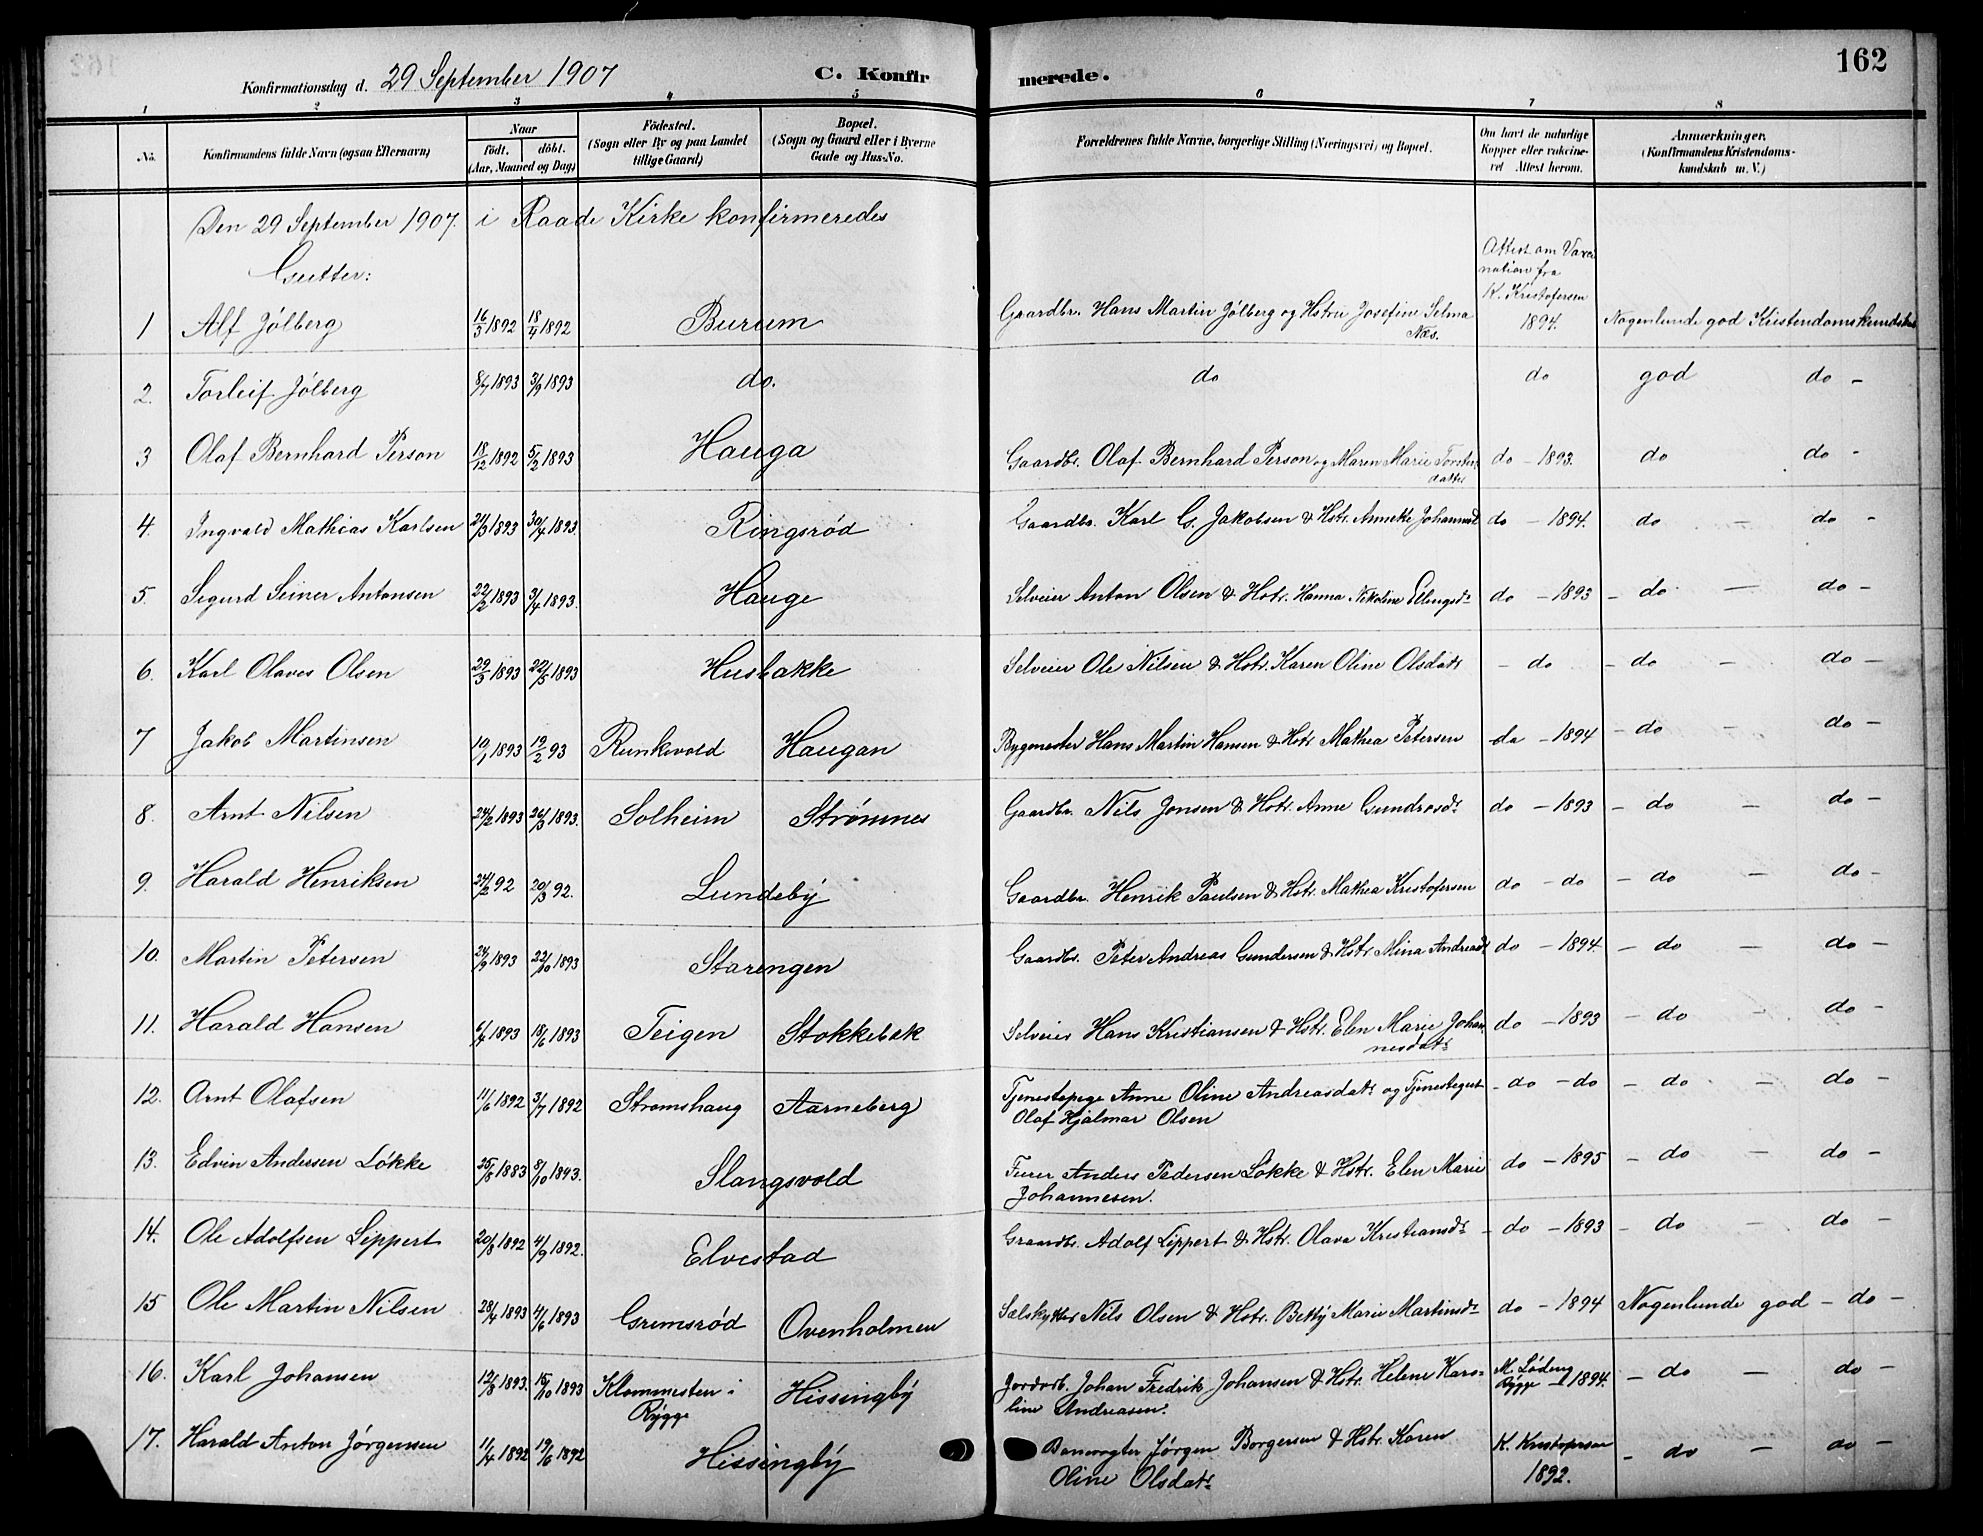 162
Konfirmationsdag d. 29 September 1907 C. Konfirmerede.
1 2 3 4 5 6 7 8
No.
Konfirmandens fulde Navn (ogsaa Efternavn)
Naar
født. døbt.
(Aar, Maaned og Dag)
Fødested.
(Sogn eller By og paa Landet
tillige Gaard)
Bopæl.
(Sogn og Gaard eller i Byerne
Gade og Hus-No.
Forældrenes fulde Navne, borgerlige Stilling (Næringsvei) og Bopæl.
Om havt de naturlige
Kopper eller vakcine-
ret Attest herom.
Anmærkninger.
(Konfirmandens Kristendoms-
kundskab m. V.)
Den 29 September 1907. i Raade Kirke konfirmeredes
Gutter:
Attest om Vaxi
nation fra
K. Kristofersen
1894.
1 Alf Jólberg 16/3 1892 18/4 1892 Burum Gaardbr. Hans Martin Jólberg og Hstru Josefin Selma
Næs. Nogenlunde god Kristendomskundskab
2. Torleif Jólberg 8/7 1893 3/9 1893 do. do do god do -
3 Olaf Bernhard Person 18/12 1892 5/2 1893 Hauga Gaardbr. Olaf Bernhard Person og Maren Marie Torsten
datter do - 1893. do do -
4. Ingvald Mathias Karlsen 21/3 1893 30/4 1893. Ringsrød Gaardbr. Karl G. Jakobsen & Hstr. Annette Johannesd do - 1894. do - do -
5. Sigurd Seiner Antonsen 22/2 1893 3/4 1893. Hauge Selveier Anton Olsen & Hstr. Hanna Nikoline Ellingsdr do - 1893 - do - do -
6. Karl Olaves Olsen 29/3 1893 22/5 1893 Husbakke Selveier Ole Nilsen & Hstr. Karen Oline Olsdatr - do - do - do -
7 Jakob Martinsen 19/1 1893 19/2 93 Runkvold Haugan Bygmester Hans Martin Hansen & Hstr Mathea Petersen do - 1894 - do - do -
8. Arnt Nilsen 24/2 1893 26/3 1893. Solheim Strømnes Gaardbr. Nils Jonsen & Hstr. Anne Gundrosdr do - 1893 - do - do -
9. Harald Henriksen 24/2 92 20/3 92. Lundeby Gaardbr. Henrik Paulsen & Hstr. Mathea Kristofersen do - do - do - do -
10. Martin Petersen 24/9 1893 22/10 1893 Starengen Gaardbr. Peter Andreas Gundersen & Hstr. Mina Andreasdr do - 1894. - do - do -
11. Harald Hansen 6/4 1893 18/6 1893 Teigen Stokkebæk Selveier Hans Kristiansen & Hstr. Elen Marie Johan
nesdatr do - 1893 - do - do -
12. Arnt Olafsen 11/6 1892 3/7 1892 Stromshaug Aarneberg Tjenestepige Anne Oline Andreasdatr og Tjenestegut
Olaf Hjalmar Olsen - do - do - do - do -
13. Edvin Andersen Løkke 25/8 1883 8/10 1843. Slangsvold Furer Anders Pedersen Løkke & Hstr. Elen Marie
Johannesen. do - 1895 - do - do -
14. Ole Adolfsen Lippert 20/8 1892 4/9 1892. Elvestad Graardbr. Adolf Lippert & Hstr. Olava Kristiansdr - do - 1893 - do - do -
15 Ole Martin Nilsen 28/4 1893 4/6 1893 Gremsrød Ovenholmen Sælskytter Nils Olsen & Hstr. Betty Marie Martinsdr do - 1894 Nogenlunde god - do -
16. Karl Johansen 12/8 1893. 15/10 1893 Klommesten i
Rygge Hissingby Jordarb. Johan Fredrik Johansen & Hstr. Helene Karo-
line Andreasen. M. Lødeng
Rygge - 1894. - do - do -
17. Harald Anton Jørgensen 11/4 1892 19/6 1892 Hissingby Banevogter Jørgen Borgersen & Hstr. Karen
Oline Olsdatr K. Kristofersen
1892. - do - do -